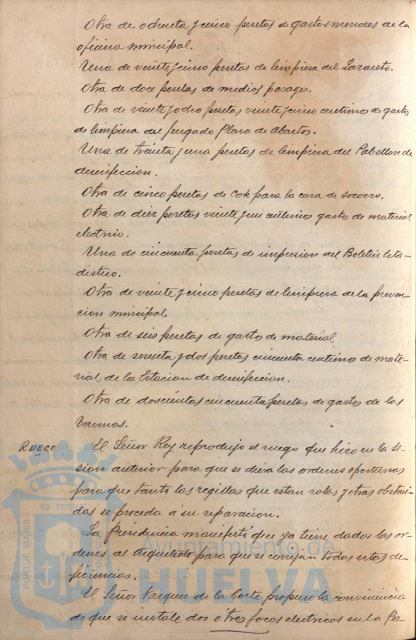 Otra de ochenta y cinco pesetas de gastos menores de la
oficina municipal.
Una de veinte y cinco pesetas de limpieza del Lazareto.
Otra de doce pesetas de medios pasages.
Otra de veinte y ocho pesetas veinte y cinco centimos de gastos
de limpieza del Juzgado Plaza de Abastos.
Una de treinta y una pesetas de limpieza del Pabellon de
desinfeccion.
Otra de cinco pesetas de Cok para la casa de socorro.
Otra de diez pesetas veinte y un centimos gasto de material
electrico.
Una de cincuenta pesetas de impresion del Boletin Esta-
distico.
Otra de veinte y cinco pesetas de limpieza de la preven-
cion municipal.
Otra de seis pesetas de gasto de material
Otra de y dos pesetas cincuenta centimos de mate-
rial de la Estacion de desinfeccion.
Otra de doscientas cincuenta pesetas de gastos de las
vacunas.
RUEGO El Señor Rey reprodujo el ruego que hizo en la se-
sion anterior para que se diera las ordenes oportunas
para que tanto las regillas que estan rotas y otras obstrui-
das se proceda a su reparacion.
La Presidencia manifestó que ya tiene dadas las or-
denes al Arquitecto para que se corrijan todas estas de-
ficiencias.
El Señor Vazquez de la Corte propuso la conveniencia
de que se instale dos o tres focos electricos en la
Ayuntamiento de
HUELVA